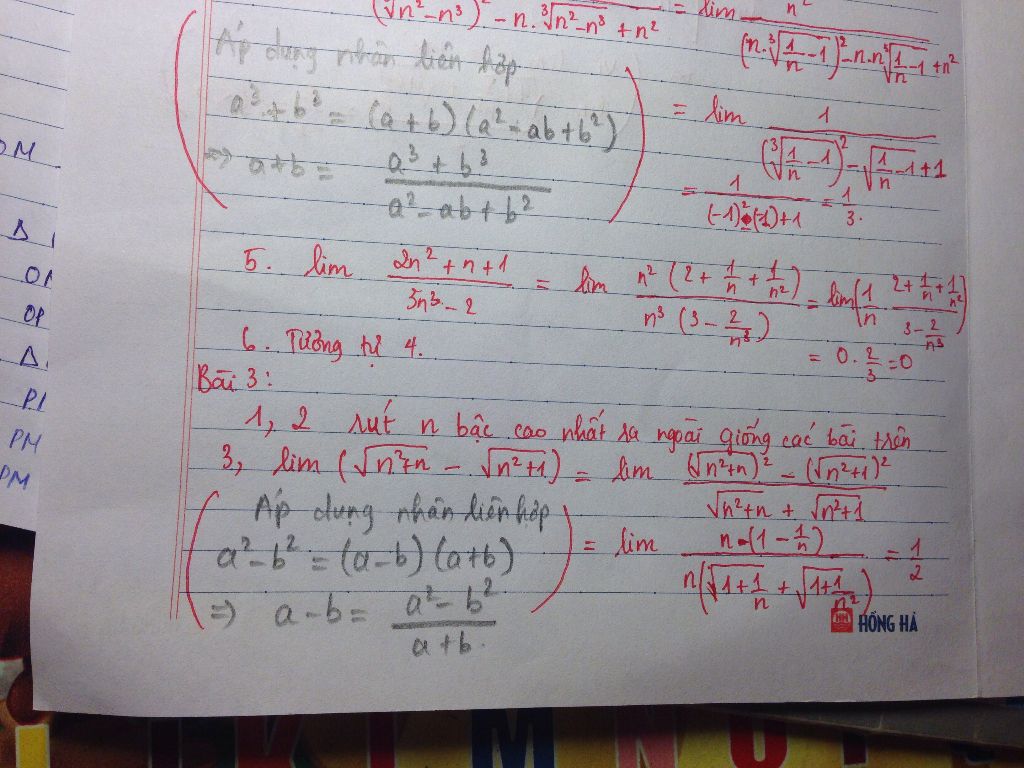 (∛n²-n³)² - n.∛n²-n³ + n² = lim n² / (n.∛(1/n - 1))² - n.n∛(1/n - 1) + n²
(Áp dụng nhân liên hợp
a³ + b³ = (a + b)(a² - ab + b²)
=> a + b = (a³ + b³)/(a² - ab + b²))
= lim 1 / (∛(1/n - 1))² - √(1/n - 1) + 1
= 1/((-1)² - (-1) + 1) = 1/3.
5. lim (2n² + n + 1)/(3n³ - 2) = lim n²(2 + 1/n + 1/n²)/n³(3 - 2/n³) = lim(1/n . (2 + 1/n + 1/n²)/(3 - 2/n³))
= 0. 2/3 = 0
6. Tương tự 4.
Bài 3:
1, 2 rút n bậc cao nhất ra ngoài giống các bài trên
3, lim (√n²+n - √n²+1) = lim ((√n²+n)² - (√n²+1)²)/(√n²+n + √n²+1)
(Áp dụng nhân liên hợp
a² - b² = (a - b)(a + b)
=> a - b = (a² - b²)/(a + b))
= lim n.(1 - 1/n)/n(√1+1/n + √1+1/n²) = 1/2
HH HỒNG HÀ
ĐM
Δ
PM
PM